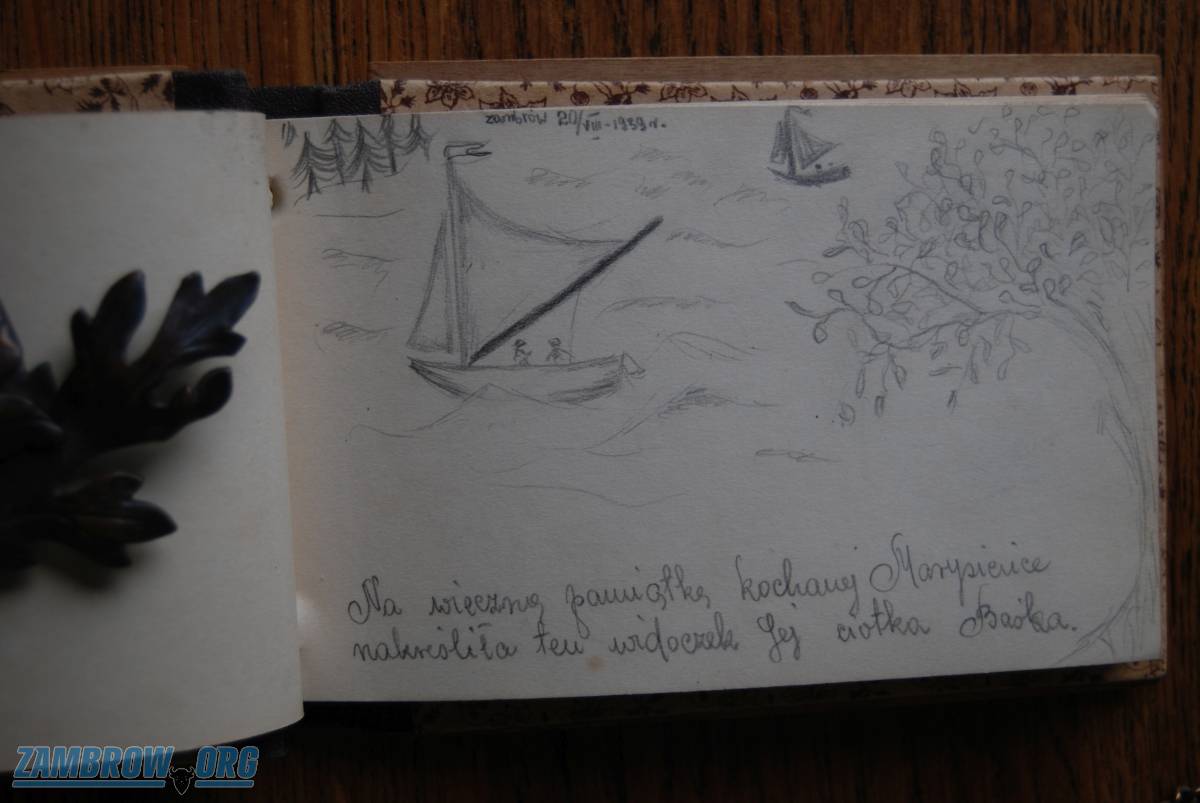 Zambrów 20/VIII-1939 r.
Na wieczną pamiątkę kochanej Marysieńce
nakreśliła ten widoczek Jej ciotka Baśka.
ZAMBROW ORG